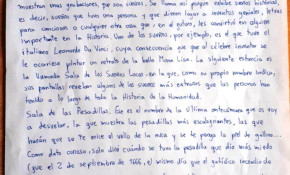 muestran unas grabaciones, que son sueños. Se llama así porque exhibe sueños históricos,
es decir, sueños que tuvo una persona y que dieron lugar a inventos geniales, letras
para canciones o cualquier otra cosa que y en el futuro, les convirtió en alguien
importante en la Historia. Uno de los sueños, por ejemplo, es el que tuvo el
italiano Leonardo Da Vinci, cuya consecuencia fue que al célebre inventor se
le ocurriese pintar un retrato de la bella Mona Lisa. La siguiente estancia es
la llamada Sala de los Sueños Locos. En la que, como su propio nombre indica,
sus pantallas revelan algunos de los sueños más extraños que las personas han
tenido a lo largo de toda la Historia de la Humanidad.
Sala de las Pesadillas. Ese es el nombre de la última antecámara que os voy
a desvelar, la que muestra las pesadillas más escalofriantes, las que
harán que se te erice el vello de la nuca y se te ponga la piel de gallina...
Como dato curioso, solo diré cuándo se tuvo la pesadilla que dio más miedo
(fue el 2 de septiembre de 1666, el mismo día que el fatídico incendio de